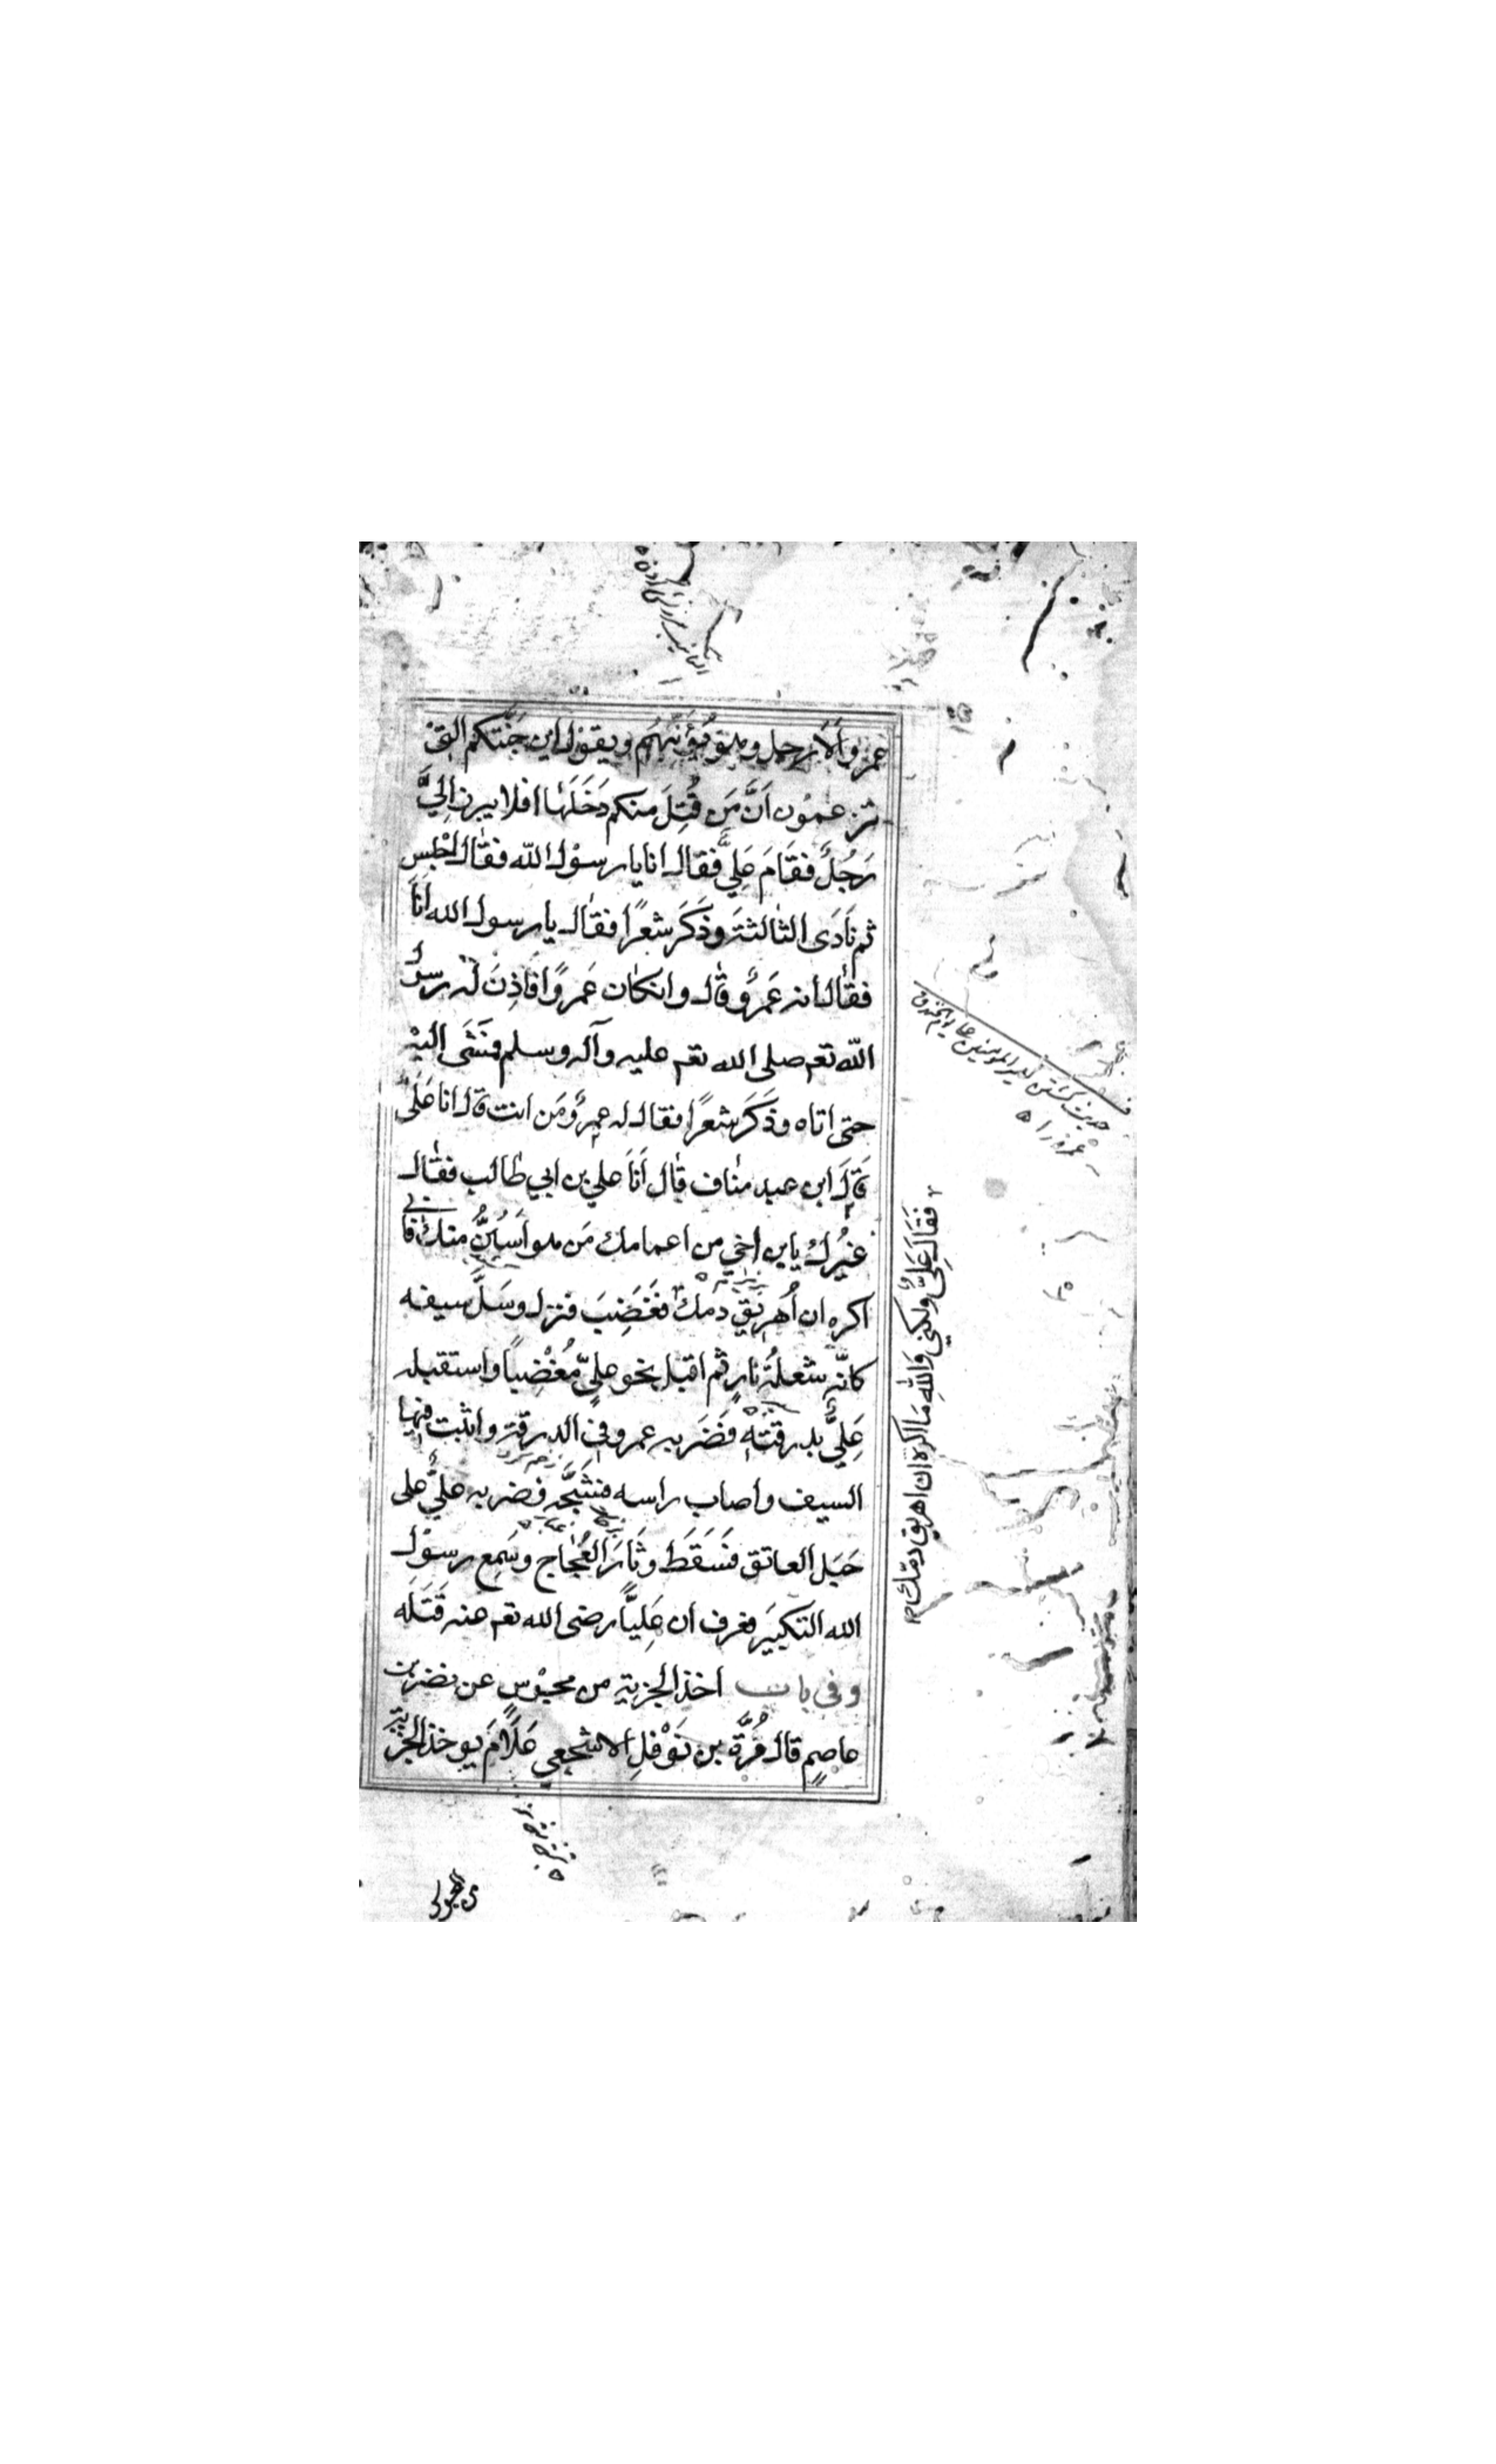 عمرو اَلَا رجل وهو يُؤَنِّبُهُم ويقول اين جَنَّتكم التيْ
تزعمون اَنَّ مَن قُتِلَ منكم دَخَلَهَا افلا يبرز اِلَيَّ
رَجُلٌ فقَامَ عَلِيٌّ فقال انا يا رسوْل الله فقال اجْلِسِ
ثم نَادَى الثالثةَ وذَكَرَ شعرًا فقال يا رسول الله انَا
فقال انه عَمرٌو قال وانكان عَمروًا فاَذِنَ لَه رسولُ
اللّٰه تعم صلى الله تعم عليه وآله وسلم فمَشَى اليْهِ
حتى اتاه وذَكَرَ شعرًا فقال له عمرٌو مَن انت قال انا عَلَىٌّ
قالَ ابن عبد مناف قال اَنَا علي بن ابي طالب فقال
غيْرُك يابن اخي من اعمامك مَن هو اَسَنُّ منك فاني
اكره ان اُهرِيْقَ دَمَك فغَضِبَ فنزل وسَلَّ سيفه
كانّه شعلةُ نارٍ ثم اقبل نحو عليٍّ مُغْضِبًا واستقبله
عَلِيٌّ بدرقتهٖ فضَرَبه عمرو فى الدرقة واثبت فيها
السيف واصاب راسه فشَجَّه فضربه عليٌّ على
حَبَل العاتق فسَقَطَ وثَارَ العُجاج وسَمِع رسوْل
الله التكبيَر فعرف ان عَليًّا رضى الله تعم عنه قَتَلَه
وفى باب اخذ الجزية من مجوْس عن نضر بن
عاصمٍ قال فُرَّةَ بن نَوْفلِ الاشجعي عَلَامَ يوخذ الجزية
فقَالَ عَلِيٌّ ولكني وَاللهِ مَا اكرهُ ان اهريق دمك